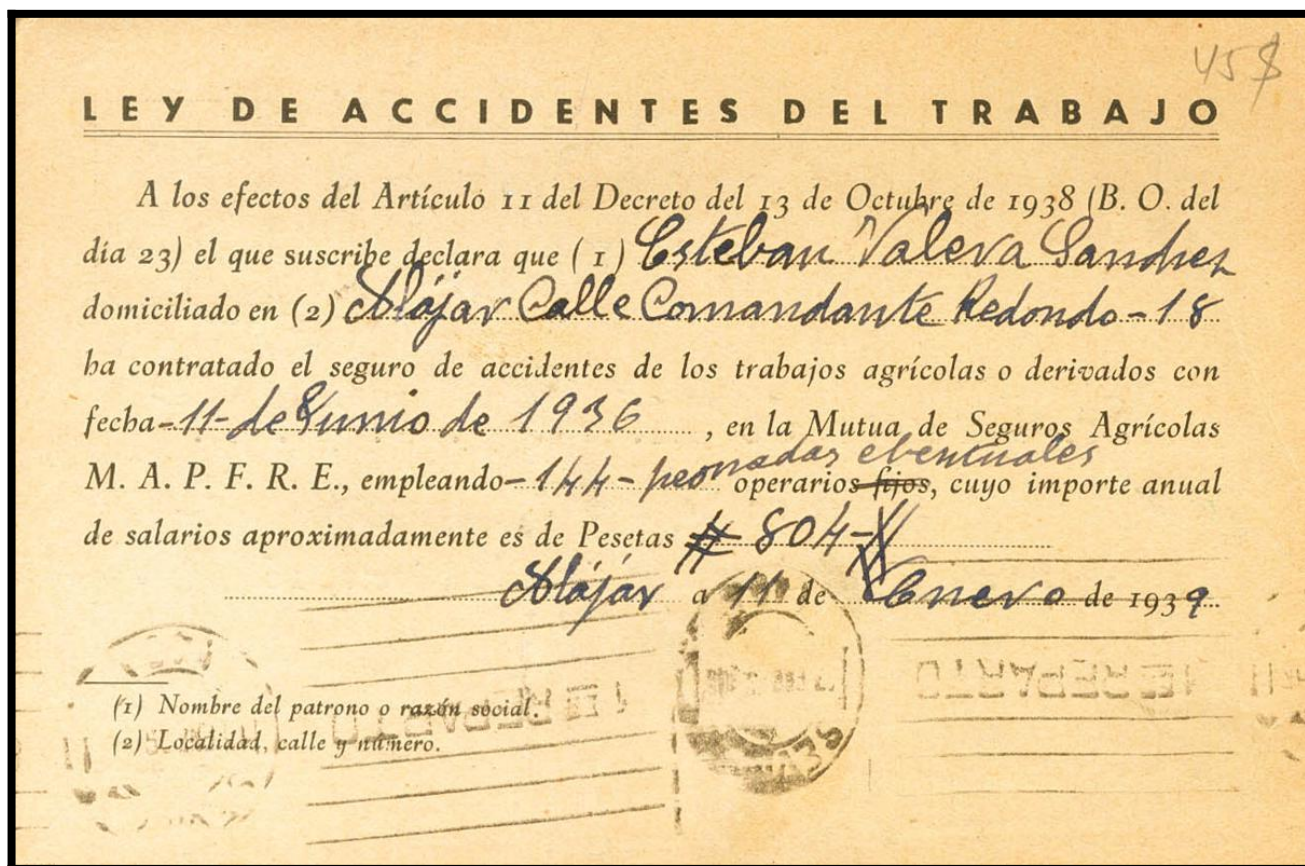 45 $
LEY DE ACCIDENTES DEL TRABAJO
A los efectos del Artículo 11 del Decreto del 13 de Octubre de 1938 (B. O. del
día 23) el que suscribe declara que (1) Esteban Valera Sanchez
domiciliado en (2) Alájar Calle Comandante Redondo - 18
ha contratado el seguro de accidentes de los trabajos agrícolas o derivados con
fecha - 11 - de Junio de 1936, en la Mutua de Seguros Agrícolas
M. A. P. F. R. E., empleando - 144 - peonadas eventuales operarios fijos, cuyo importe anual
de salarios aproximadamente es de Pesetas # 804 - #
Alájar a 11 de Enero de 1939.
1 E REPARTO
1 E REPARTO
(1) Nombre del patrono o razón social.
(2) Localidad, calle y número.